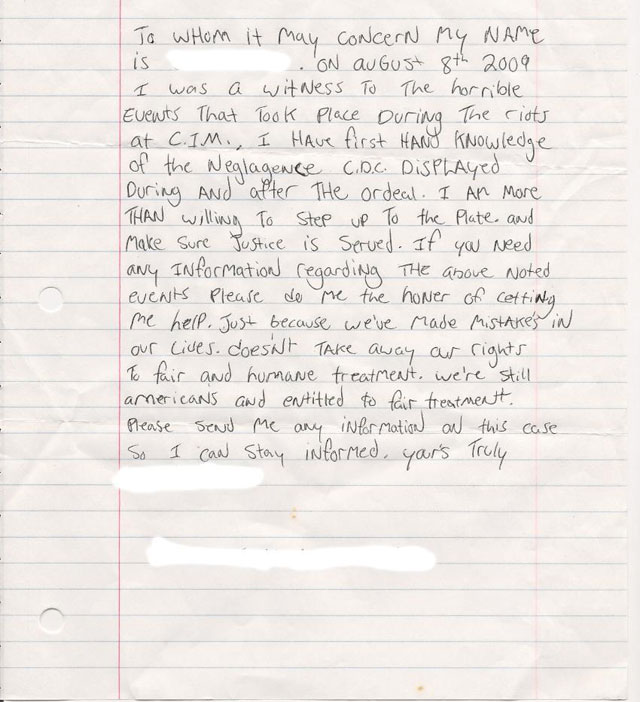 To WHom it May concern My NAMe
is . ON auGust 8th 2009
I was a witNess To The horrible
Events That Took Place During The riots
at C.I.M., I HAve first HAND KNowledge
of the Neglagence C.D.C. DisPLAYed
During AND after THe ordeal. I Am More
THAN willing To Step up To the Plate. and
Make Sure Justice is Served. If you Need
any INformation regarding THe above Noted
events Please do Me the honer of Letting
Me help. Just because we've Made MistAKe's in
our Lives. doesn't TAKe away our rights
To fair and humane treatment. we're still
americans and entitled to fair treatment.
Please Send Me any information on this case
So I can Stay informed. your's Truly